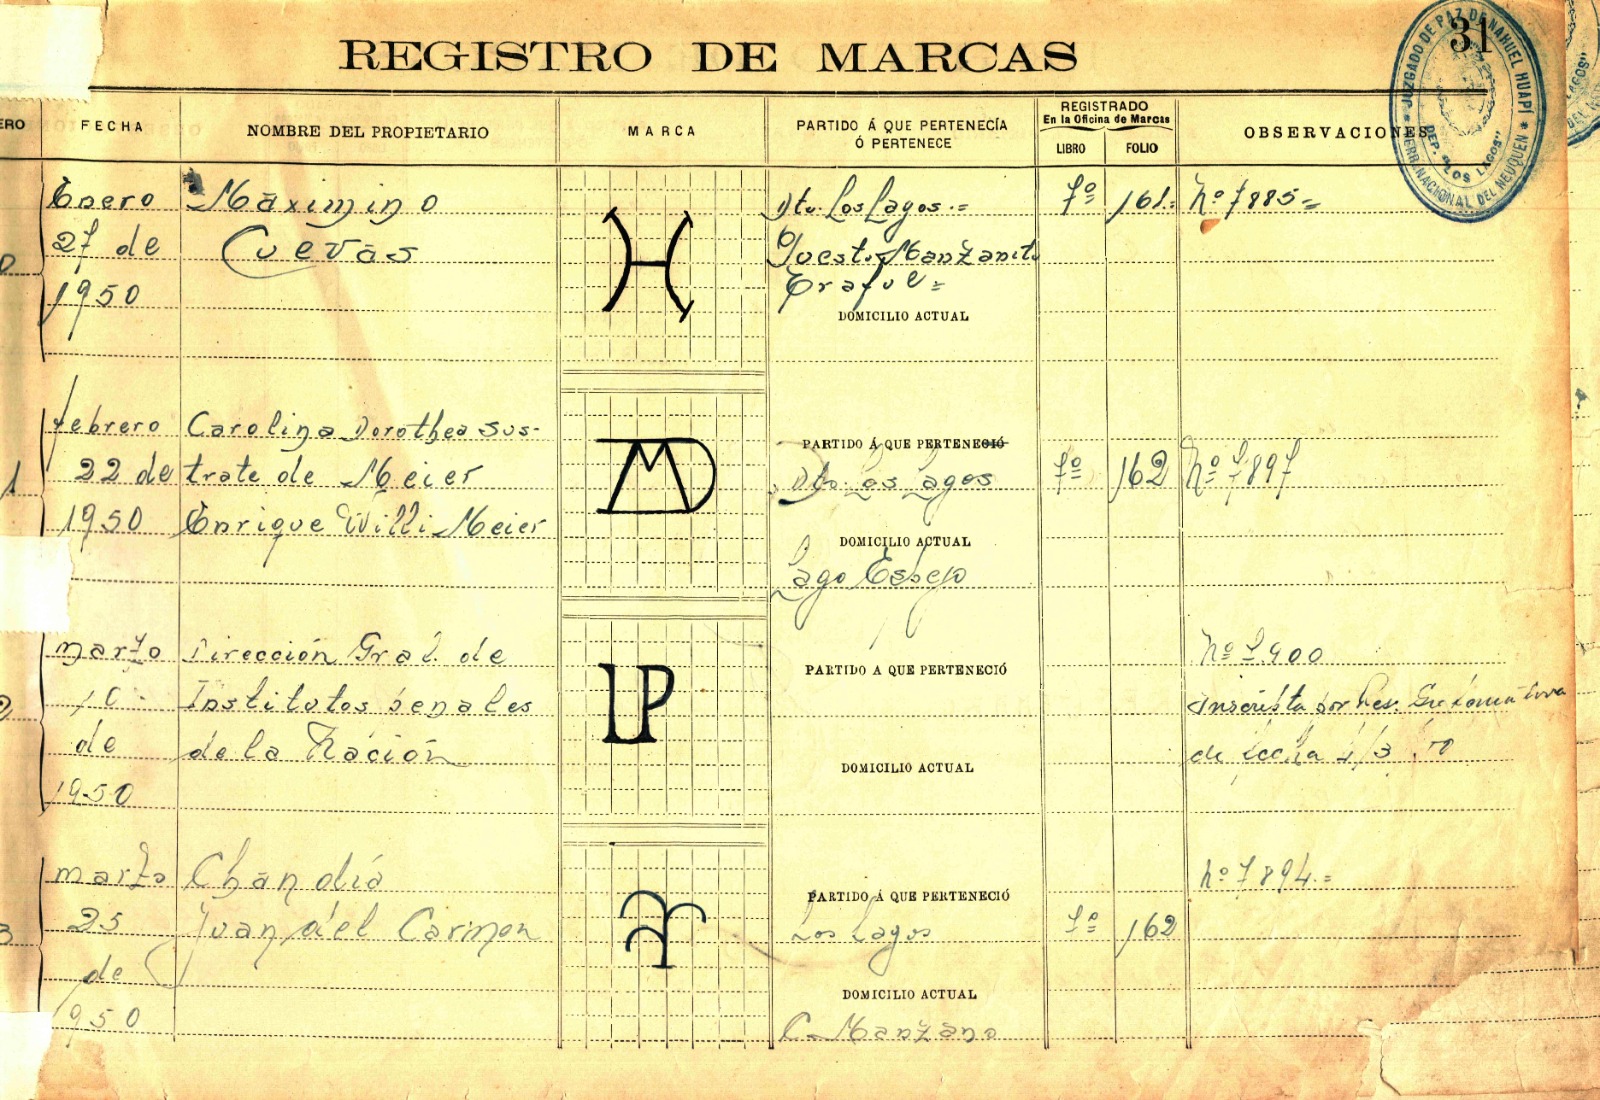 31
REGISTRO DE MARCAS
JUZGADO DE PAZ DE NAHUEL HUAPÍ
DEP. "LOS LAGOS"
TERR. NACIONAL DEL NEUQUEN
LAGOS"
ERO
FECHA
NOMBRE DEL PROPIETARIO
MARCA
PARTIDO Á QUE PERTENECÍA
Ó PERTENECE
REGISTRADO
En la Oficina de Marcas
LIBRO
FOLIO
OBSERVACIONES
Enero Máximino Dto. Los Lagos.= 7º 161.= Nº 7885=
0 27 de Cuevas Manzanito
1950 Traful=
DOMICILIO ACTUAL
febrero Carolina Dorothea Sus-
PARTIDO Á QUE PERTENECIÓ
1 22 de trate de Meier MD Dto. Los Lagos 7º 162 Nº 7897
1950 Enrique Willi Meier
DOMICILIO ACTUAL
Lago Espejo
marzo Dirección Gral. de Nº 7.900
PARTIDO A QUE PERTENECIÓ
2 10 Institutos Penales UP Inscripta por Res.
de de la Nación de fecha 4/3 50
DOMICILIO ACTUAL
1950
marzo Chandía Nº 7894.=
PARTIDO Á QUE PERTENECIÓ
3 25 Juan del Carmen Los Lagos 7º 162
de
DOMICILIO ACTUAL
950 C. Manzano